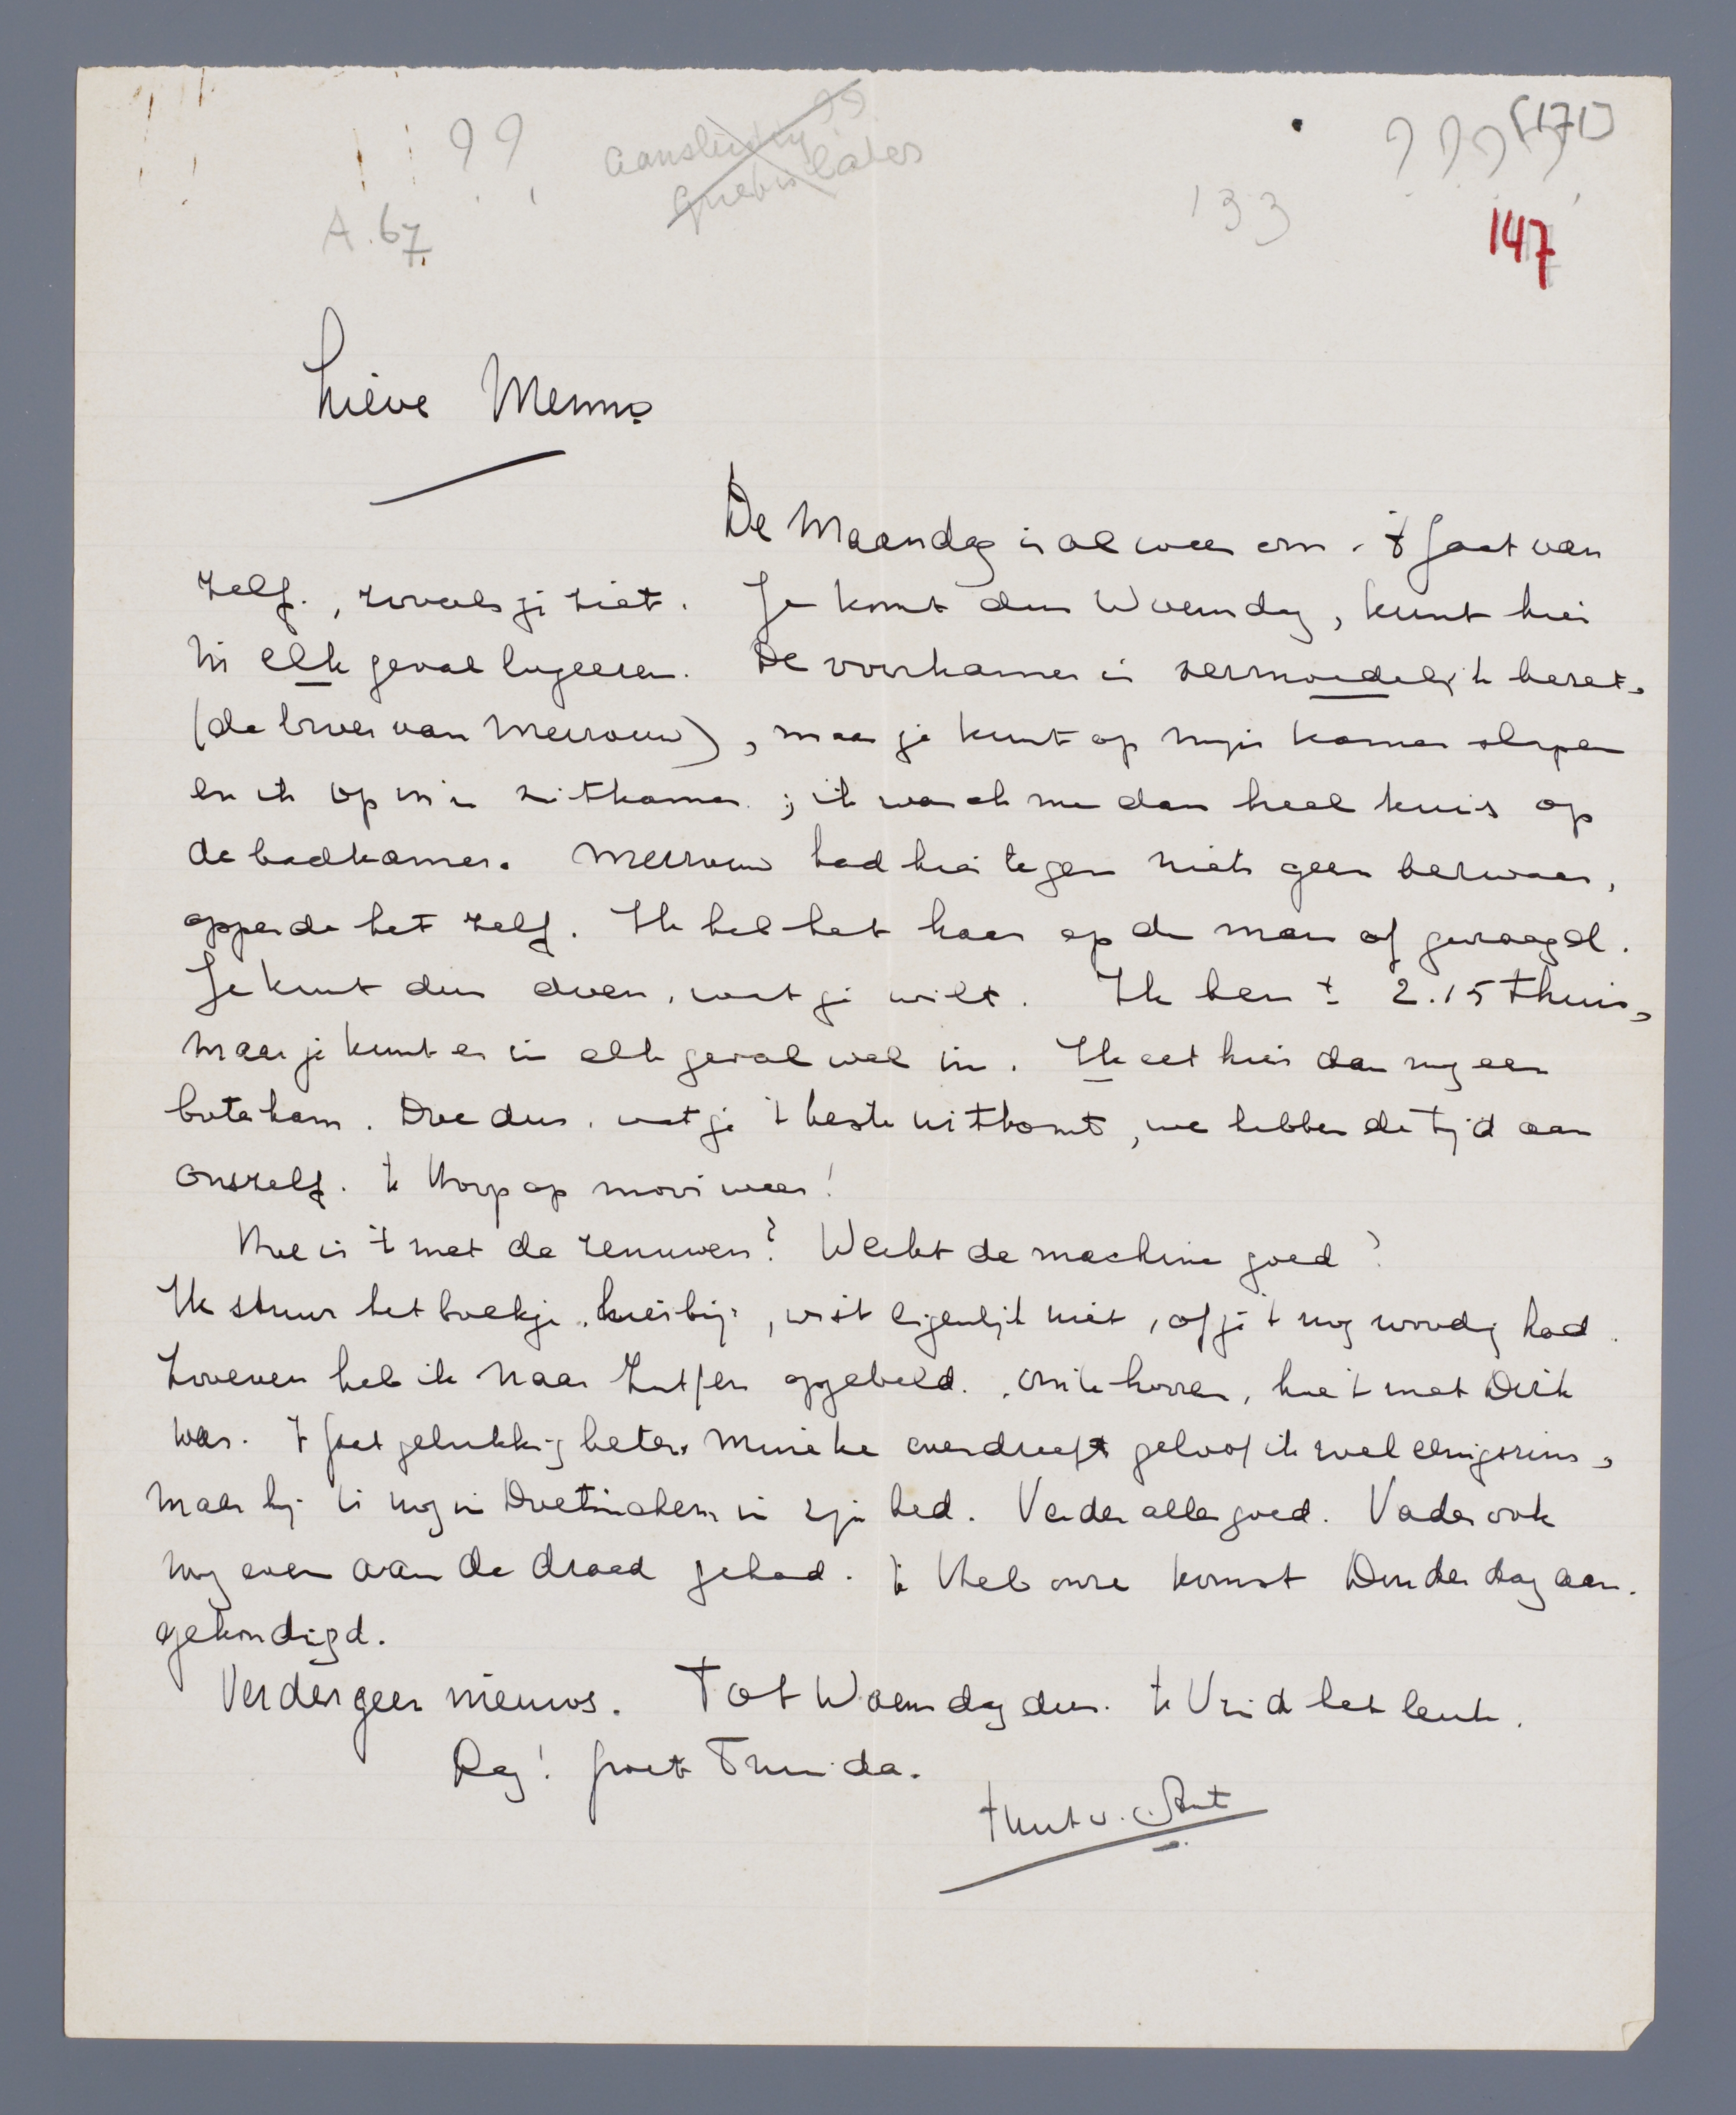 ? ? aansluiting 99 ? ? ? ? [171]
later
A.67. 133 147
Lieve Menno
De Maandag is al weer om. 't Gaat van
zelf, zooals je ziet. Je komt dus Woensdag, kunt hier
in elk geval logeeren. De voorkamer is vermoedelijk bezet,
(de broer van Mevrouw), maar je kunt op mijn kamer slapen
en ik op m'n zitkamer; ik wasch me dan heel kuis op
de badkamer. Mevrouw had hier tegen niets geen bezwaar,
opperde het zelf. Ik heb het haar op de man af gevraagd.
Je kunt dus doen, wat je wilt. Ik ben ± 2.15 thuis,
maar je kunt er in elk geval wel in. Ik eet hier dan nog een
boteham. Doe dus, wat je 't beste uitkomt, we hebben de tijd aan
onszelf. 'k Hoop op mooi weer!
Hoe is 't met de zenuwen? Werkt de machine goed?
Ik stuur het boekje hierbij, wist eigenlijk niet, of je 't nog noodig had.
Zooeven heb ik naar Zutfen opgebeld, om te hooren, hoe 't met Dirk
was. 't Gaat gelukkig beter. Mineke overdreeft geloof ik wel eenigszins,
maar hij is nog in Doetinchem in zijn bed. Verder alles goed. Vader ook
nog even aan de draad gehad. 'k Heb onze komst Donderdag aan-
gekondigd.
Verder geen nieuws. Tot Woensdag dus. 'k Vind het leuk.
Dag! Groet Truida.
t hut v.